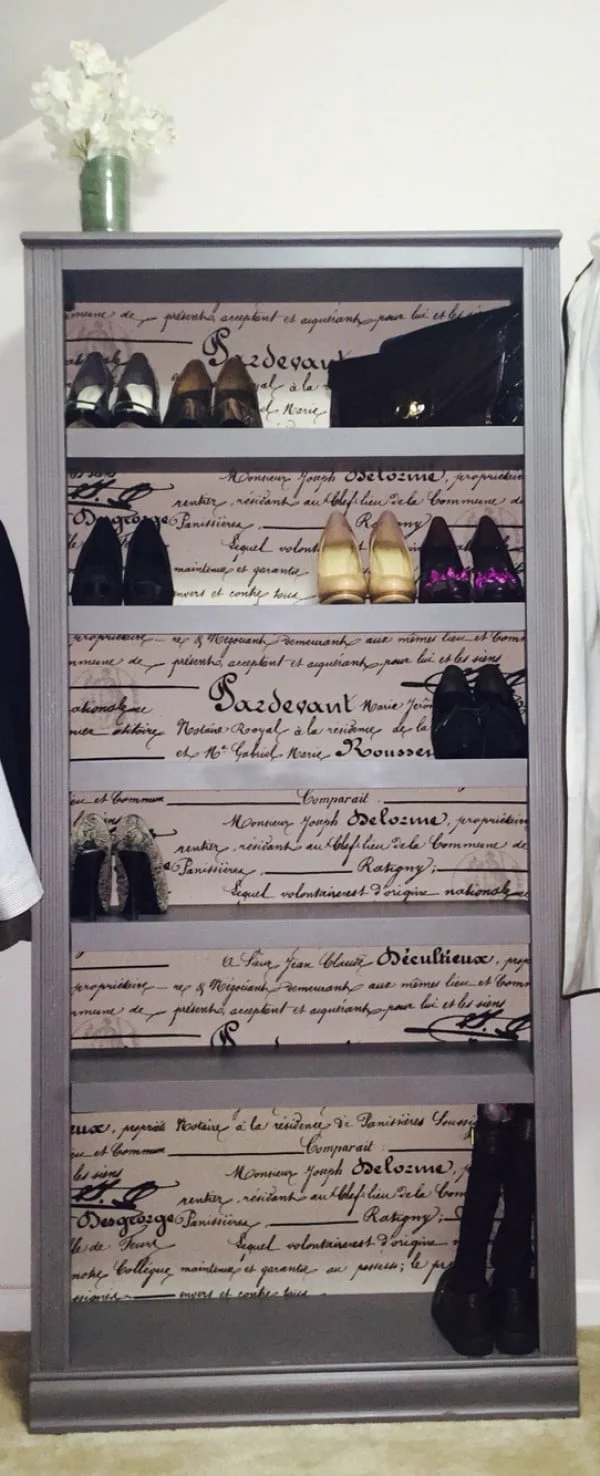 mmune de présents, acceptant et aiguérant pour lui et les s
Pardevant
yal à la
Marie
Monsieur Joseph Delorme, propriétair
rentier, résidant au Chef-lieu de la Commune de
Desgeorge Panissières, Ra ny
Lequel volont
maintenue et garantie
envers et contre tous
propriétaire re & Négociant demeurant aux mêmes lieu et Com
mmune de présents, acceptant et aiguérant pour lui et les siens
Pardevant Marie Jérôm
ationale
Notaire Royal à la résidence de la
et Me Gabriel Marie Rousse
eu et Commun Comparait
Monsieur Joseph Delorme, propriétair
rentier, résidant au Chef-lieu de la Commune de
Panissières, Ratigny;
Lequel volontairerest d'origine nationale
A Sieur Jean Claude Décultieux, prop
propriétaire re & Négociant demeurant aux mêmes lieu et Com
mmune de présents, acceptant et aiguérant pour lui et les siens
eux, propriét Notaire à la résidence de Panissières Soussi
eu et Commun Comparait
Monsieur Joseph Delorme, p
les siens
rentier, résidant au Chef-lieu de la Com
Desgeorge Panissières, Ratigny;
lle de Feurs Lequel volontairerest d'origine n
notre Collègue maintenue et garantie au possess; le pr
envers et contre tous